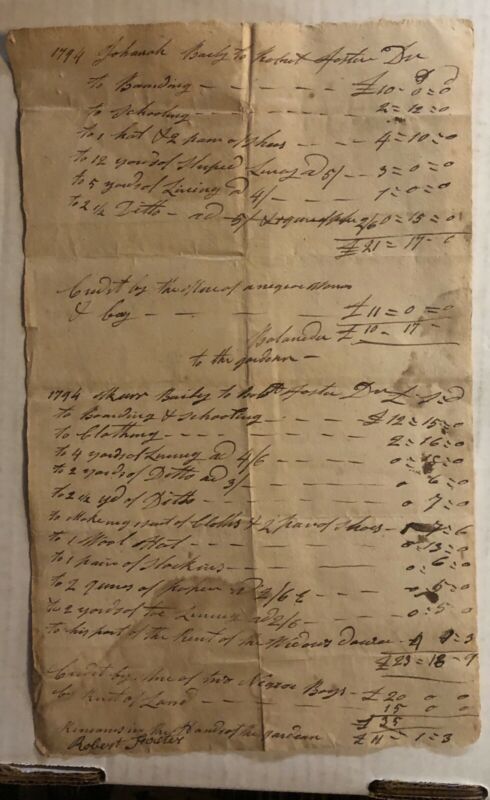 1794 Johanah Baily to Robert Foster Dr
to Boarding - - - - - £10-0=0
to Schooling - - - - - 2=12=0
to 1 hat & 2 pair of Shoes - - - 4=10=0
to 12 yards of Striped Linny ad 5/- - 3=0=0
to 5 yards of Linning ad 4/ - - 1=0=0
to 2 ½ Ditto - ad 5/ & 2/6 0=15=0
£21=17- 0
Credit by the Hire of a negroe Woman
& boy - - - - - £11=0=0
Balance due £10-17-
to the gardean -
1794 Baily to Robt Foster Dr £ S D
to Boarding & Schooling - - - - £12=15=0
to Clothing - - - - - - 2=16=0
to 4 yards of Linning ad 4/6 - - 0=18=0
to 2 yards of Ditto ad 3/ - - - 0 6=0
to 2 ½ yd of Ditto - - - - 0 7=0
to Making Suit of Cloths & 2 pair of Shoes - 7=6
to 1 Wool Hat - - - - 0=13=0
to 1 pair of Stockins - - - 0=6=0
to 2 of paper ad 2/6 - - 0=5=0
to 2 yards of Linning ad 2/6 - - 0=5=0
to his part of the Rent of the Widows Dower - 4 3
£23=18-9
Credit by hire of two Negroe Boys - £20 0 0
by Rent of Land - - - 15 0 0
£35
Remains in the Hands of the gardean £11=1=3
Robert Foster